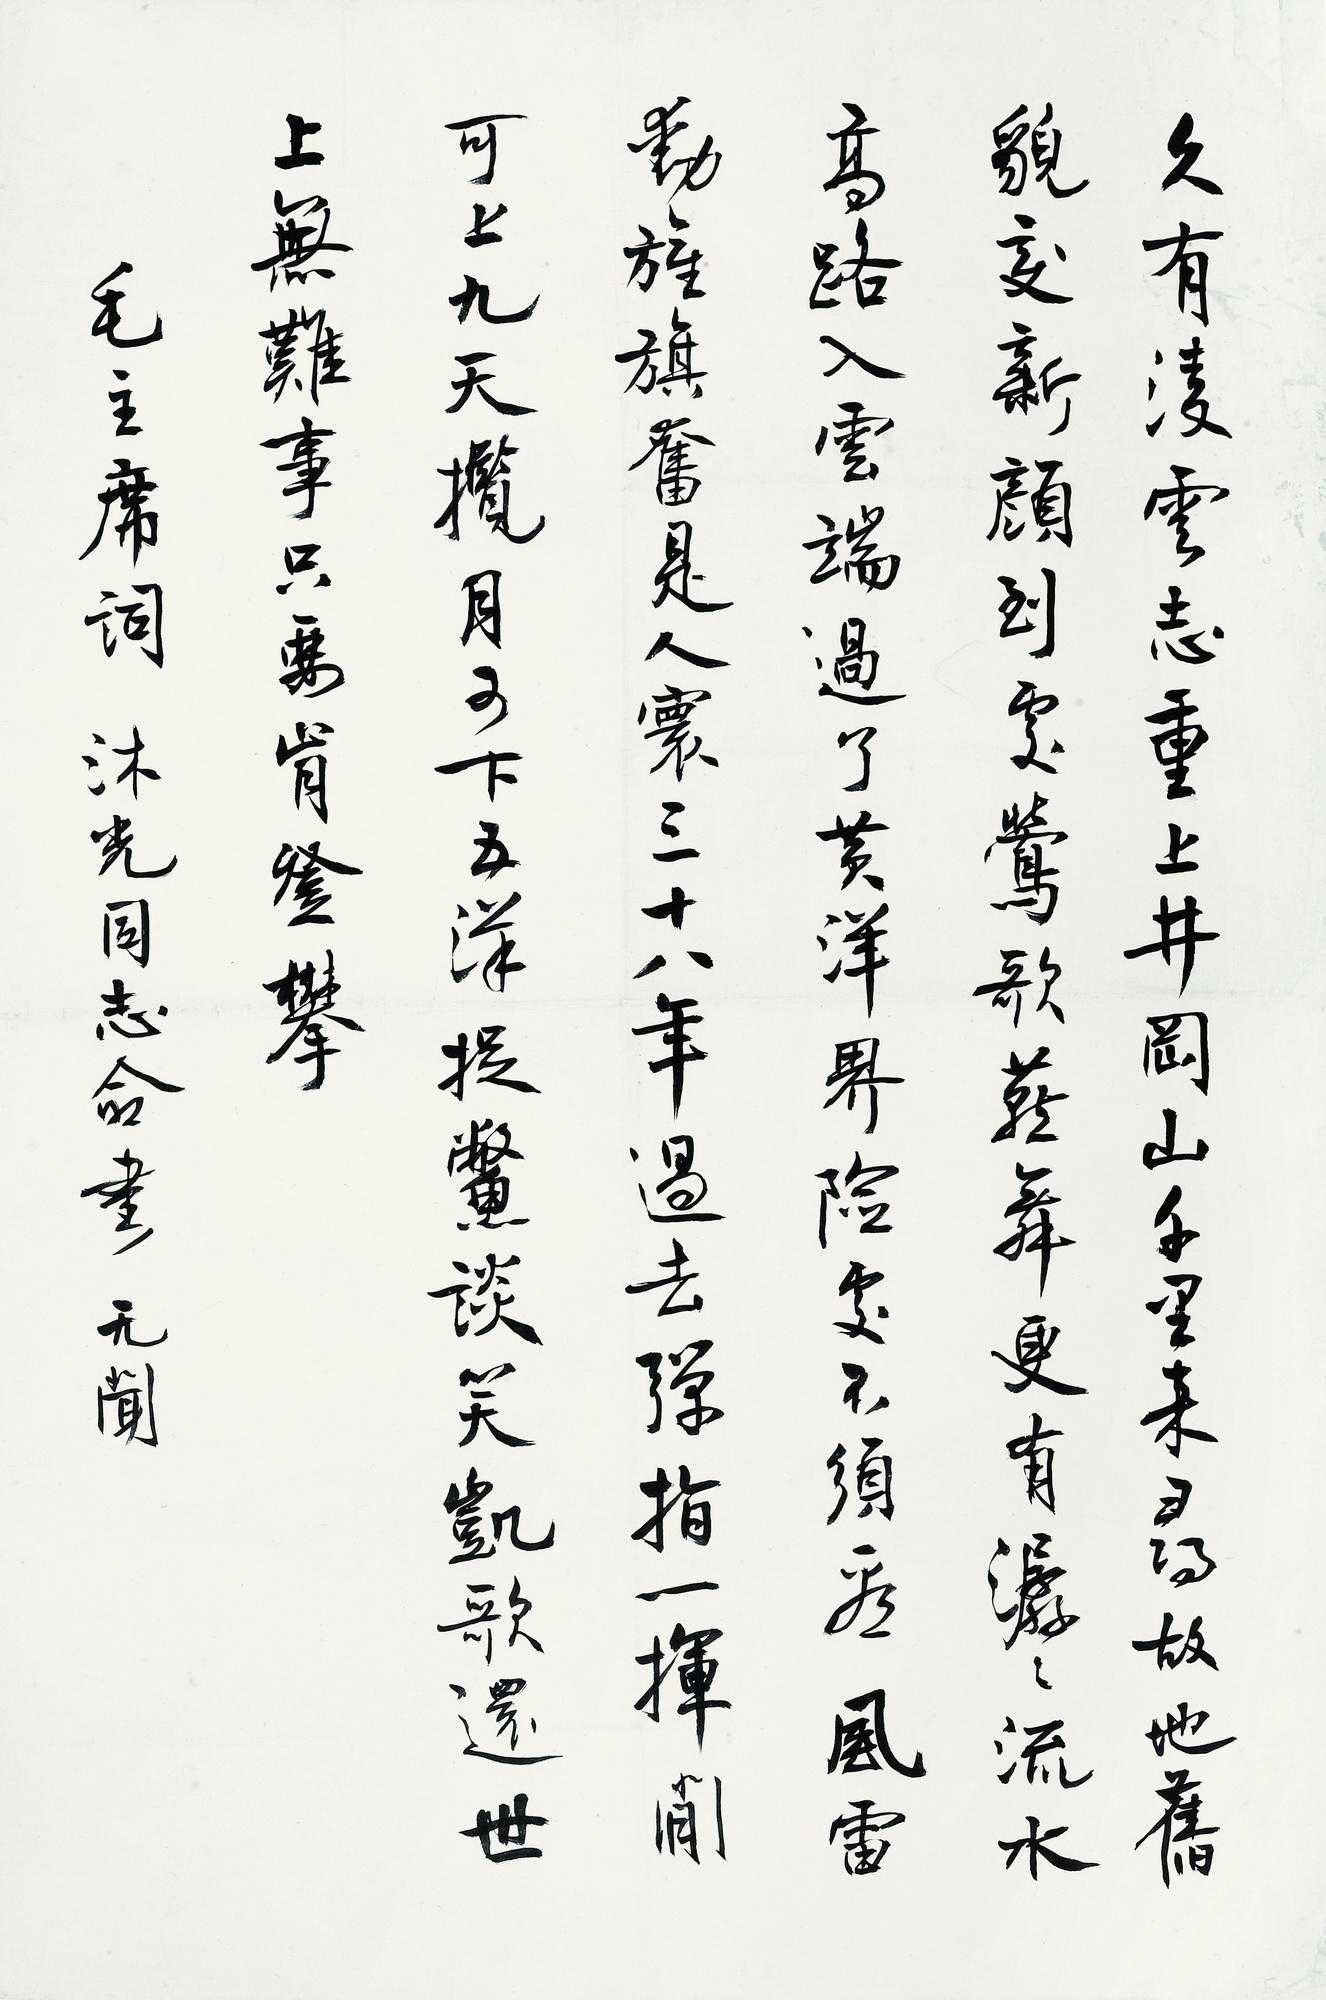 久有凌雲志重上井岡山千里來尋故地舊
貌變新顏到處鶯歌燕舞更有潺〻流水
高路入雲端過了黃洋界險處不須看風雷
動旌旗奮是人寰三十八年過去彈指一揮間
可上九天攬月可下五洋捉鱉談笑凱歌還世
上無難事只要肯登攀
毛主席詞 沐光同志命書 无聞